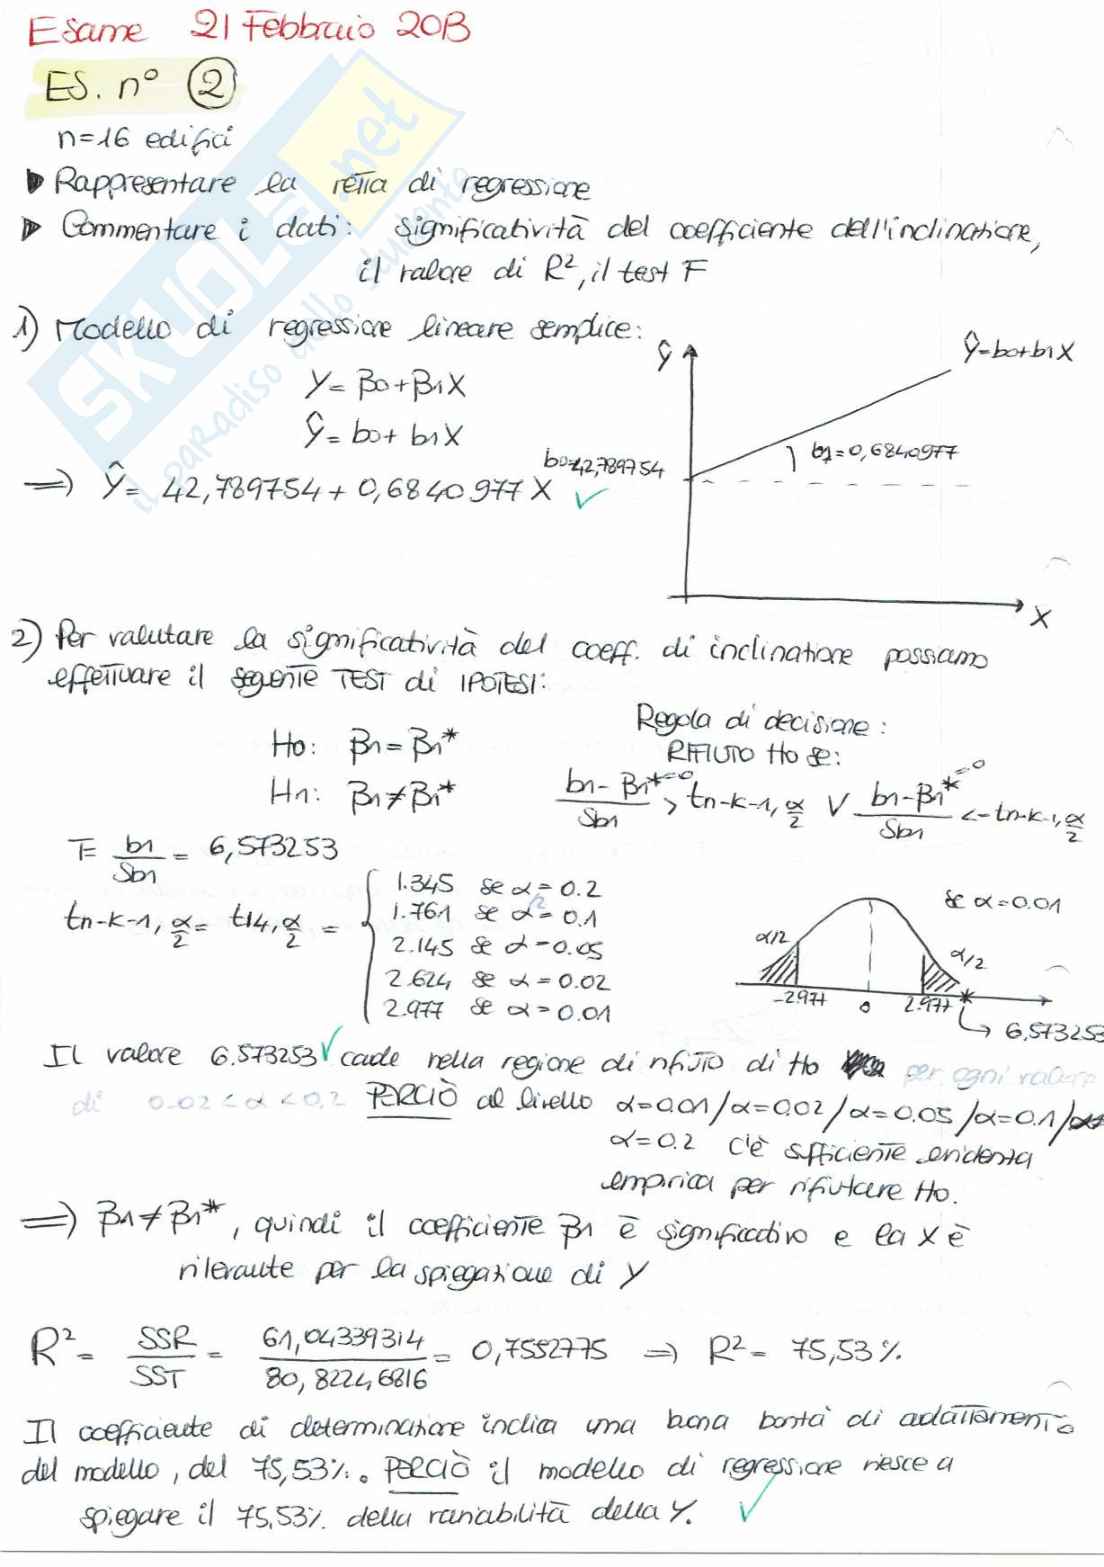 Esame 21 Febbraio 2013
ES. n° 2
n=16 edifici
Rappresentare la retta di regressione
Commentare i dati: significatività del coefficiente dell'inclinazione,
il valore di R², il test F
1) Modello di regressione lineare semplice:
Y = β0+β1X
Ŷ = b0+b1X
⇒ Ŷ = 42,789754 + 0,6840977 X ✓
Ŷ
Ŷ=b0+b1X
b0=42,789754
b1=0,6840977
X
2) Per valutare la significatività del coeff. di inclinazione possiamo
effettuare il segente TEST di IPOTESI:
H0: β1 = β1*
H1: β1 ≠ β1*
Regola di decisione:
RIFIUTO H0 se:
b1-β1*=0 / Sb1 > tn-k-1, α/2 ∨ b1-β1*=0 / Sb1 < -tn-k-1, α/2
T= b1/Sb1 = 6,573253
tn-k-1, α/2 = t14, α/2 =
1.345 se α=0.2
1.761 se α=0.1
2.145 se α=0.05
2.624 se α=0.02
2.977 se α=0.01
se α=0.01
α/2
α/2
-2.977 0 2.977 *
→ 6,573253
Il valore 6.573253 ✓ cade nella regione di rifiuto di H0 per ogni valore
di 0.02<α<0.2 PERCIÒ al livello α=0.01/α=0.02/α=0.05/α=0.1/
α=0.2 c'è sufficiente evidenza
empirica per rifiutare H0.
⇒ β1≠β1*, quindi il coefficiente β1 è significativo e la X è
rilevante per la spiegazione di Y
R² = SSR/SST = 61,04339314/80,82246816 = 0,7552775 ⇒ R² = 75,53%
Il coefficiente di determinazione indica una buona bontà di adattamento
del modello, del 75,53%. PERCIÒ il modello di regressione riesce a
spiegare il 75,53% della variabilità della Y. ✓
SKUOLA.net
il paradiso dello studente